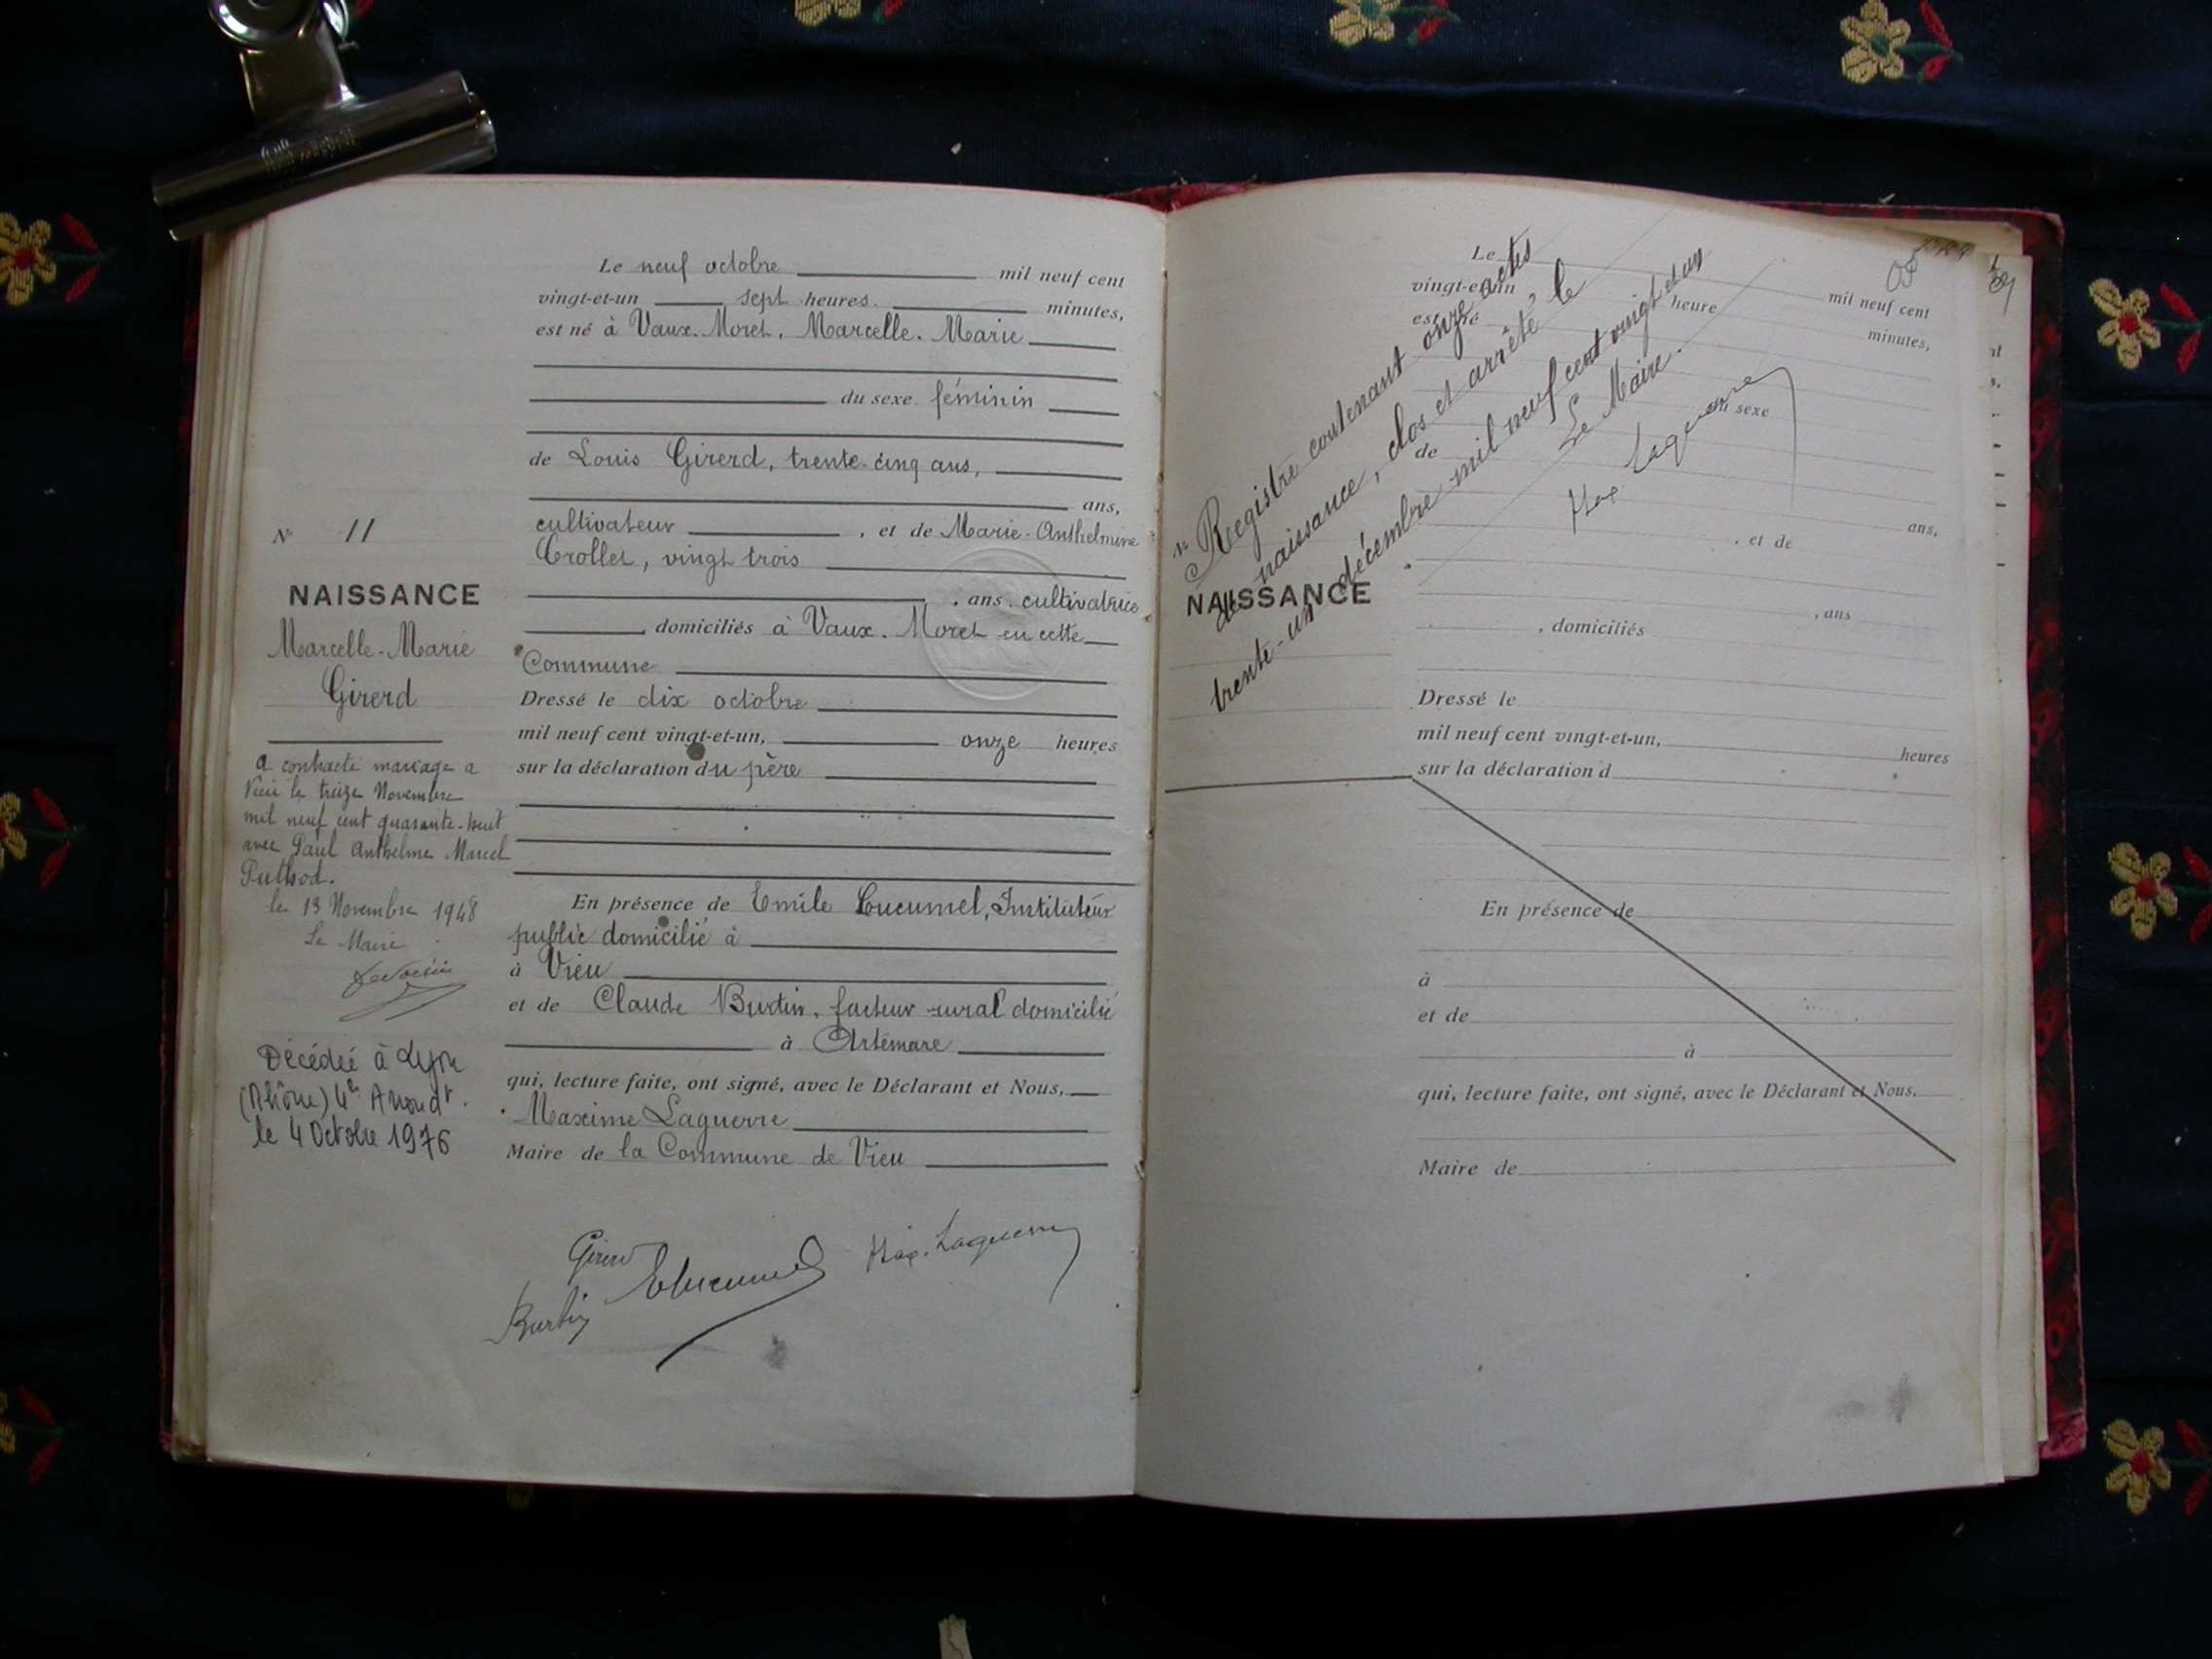 Le neuf octobre mil neuf cent
vingt-et-un sept heures minutes,
est né à Vaux-Moret, Marcelle-Marie
du sexe féminin
de Louis Girerd, trente-cinq ans,
ans,
cultivateur , et de Marie-Anthelmine
Crollet, vingt trois
, ans, cultivatrice
domiciliés à Vaux-Moret en cette
Commune
Dressé le dix octobre
mil neuf cent vingt-et-un, onze heures
sur la déclaration du père
En présence de Emile Cucumel, Instituteur
public domicilié à
à Vieu
et de Claude Burtin, facteur rural domicilié
à Artemare
qui, lecture faite, ont signé, avec le Déclarant et Nous,
Maxime Laguerre
Maire de la Commune de Vieu
Girerd
Burtin
Max. Laguerre
N° 11
NAISSANCE
Marcelle-Marie
Girerd
a contracté mariage a
Vieu le treize Novembre
mil neuf cent quarante-huit
avec Paul Anthelme Marcel
Puthod.
le 13 Novembre 1948
Le Maire
Décédée à Lyon
(Rhône) 4e Arrondt.
le 4 Octobre 1976
Le
mil neuf cent
vingt-et-un heure minutes,
est né
du sexe
de
ans,
, et de
, ans
, domiciliés
Dressé le
mil neuf cent vingt-et-un, heures
sur la déclaration d
En présence de
à
et de
à
qui, lecture faite, ont signé, avec le Déclarant et Nous,
Maire de
N°
NAISSANCE
Registre contenant onze actes
de naissance, clos et arrêté, le
trente-un décembre mil neuf cent vingt et un
Le Maire.
Max. Laguerre